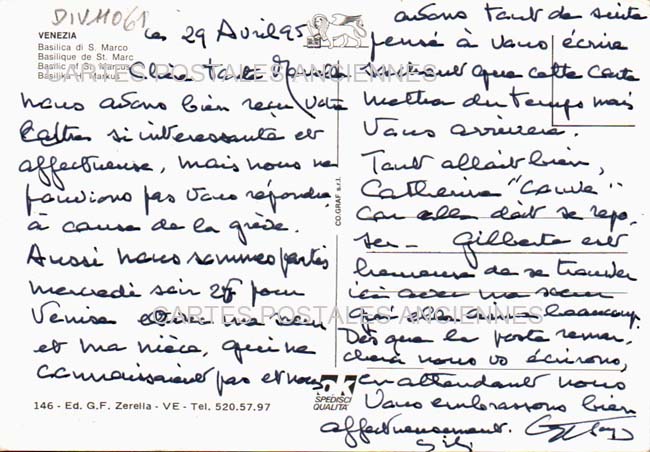 DIVM061
VENEZIA
Basilica di S. Marco
Basilique de St. Marc
Basilic of St. Marcus
Basilika Markus
CARTES POSTALES ANCIENNES
29 Avril 95
Chère Tante
nous avons bien reçu votre
lettre si intéressante et
affectueuse, mais nous ne
pouvions pas vous répondre
à cause de la grève.
Aussi nous sommes partis
mercredi soir pour
Venise avec ma sœur
et ma nièce, qui ne
connaissaient pas et nous
avons tout de suite
pensé à vous écrire
sachant que cette carte
mettra du temps mais
vous arrivera.
Tout allait bien,
Catherine
car elle doit se repo-
ser - Gilberte est
heureuse de se trouver
ici avec ma sœur
qu'elle aime beaucoup.
Dès que la poste remar-
chera nous vs écrirons,
en attendant nous
vous embrassons bien
affectueusement.
CARTES POSTALES ANCIENNES
CO.GRAF s.r.l.
SPEDISCI
QUALITÀ
146 - Ed. G.F. Zerella - VE - Tel. 520.57.97